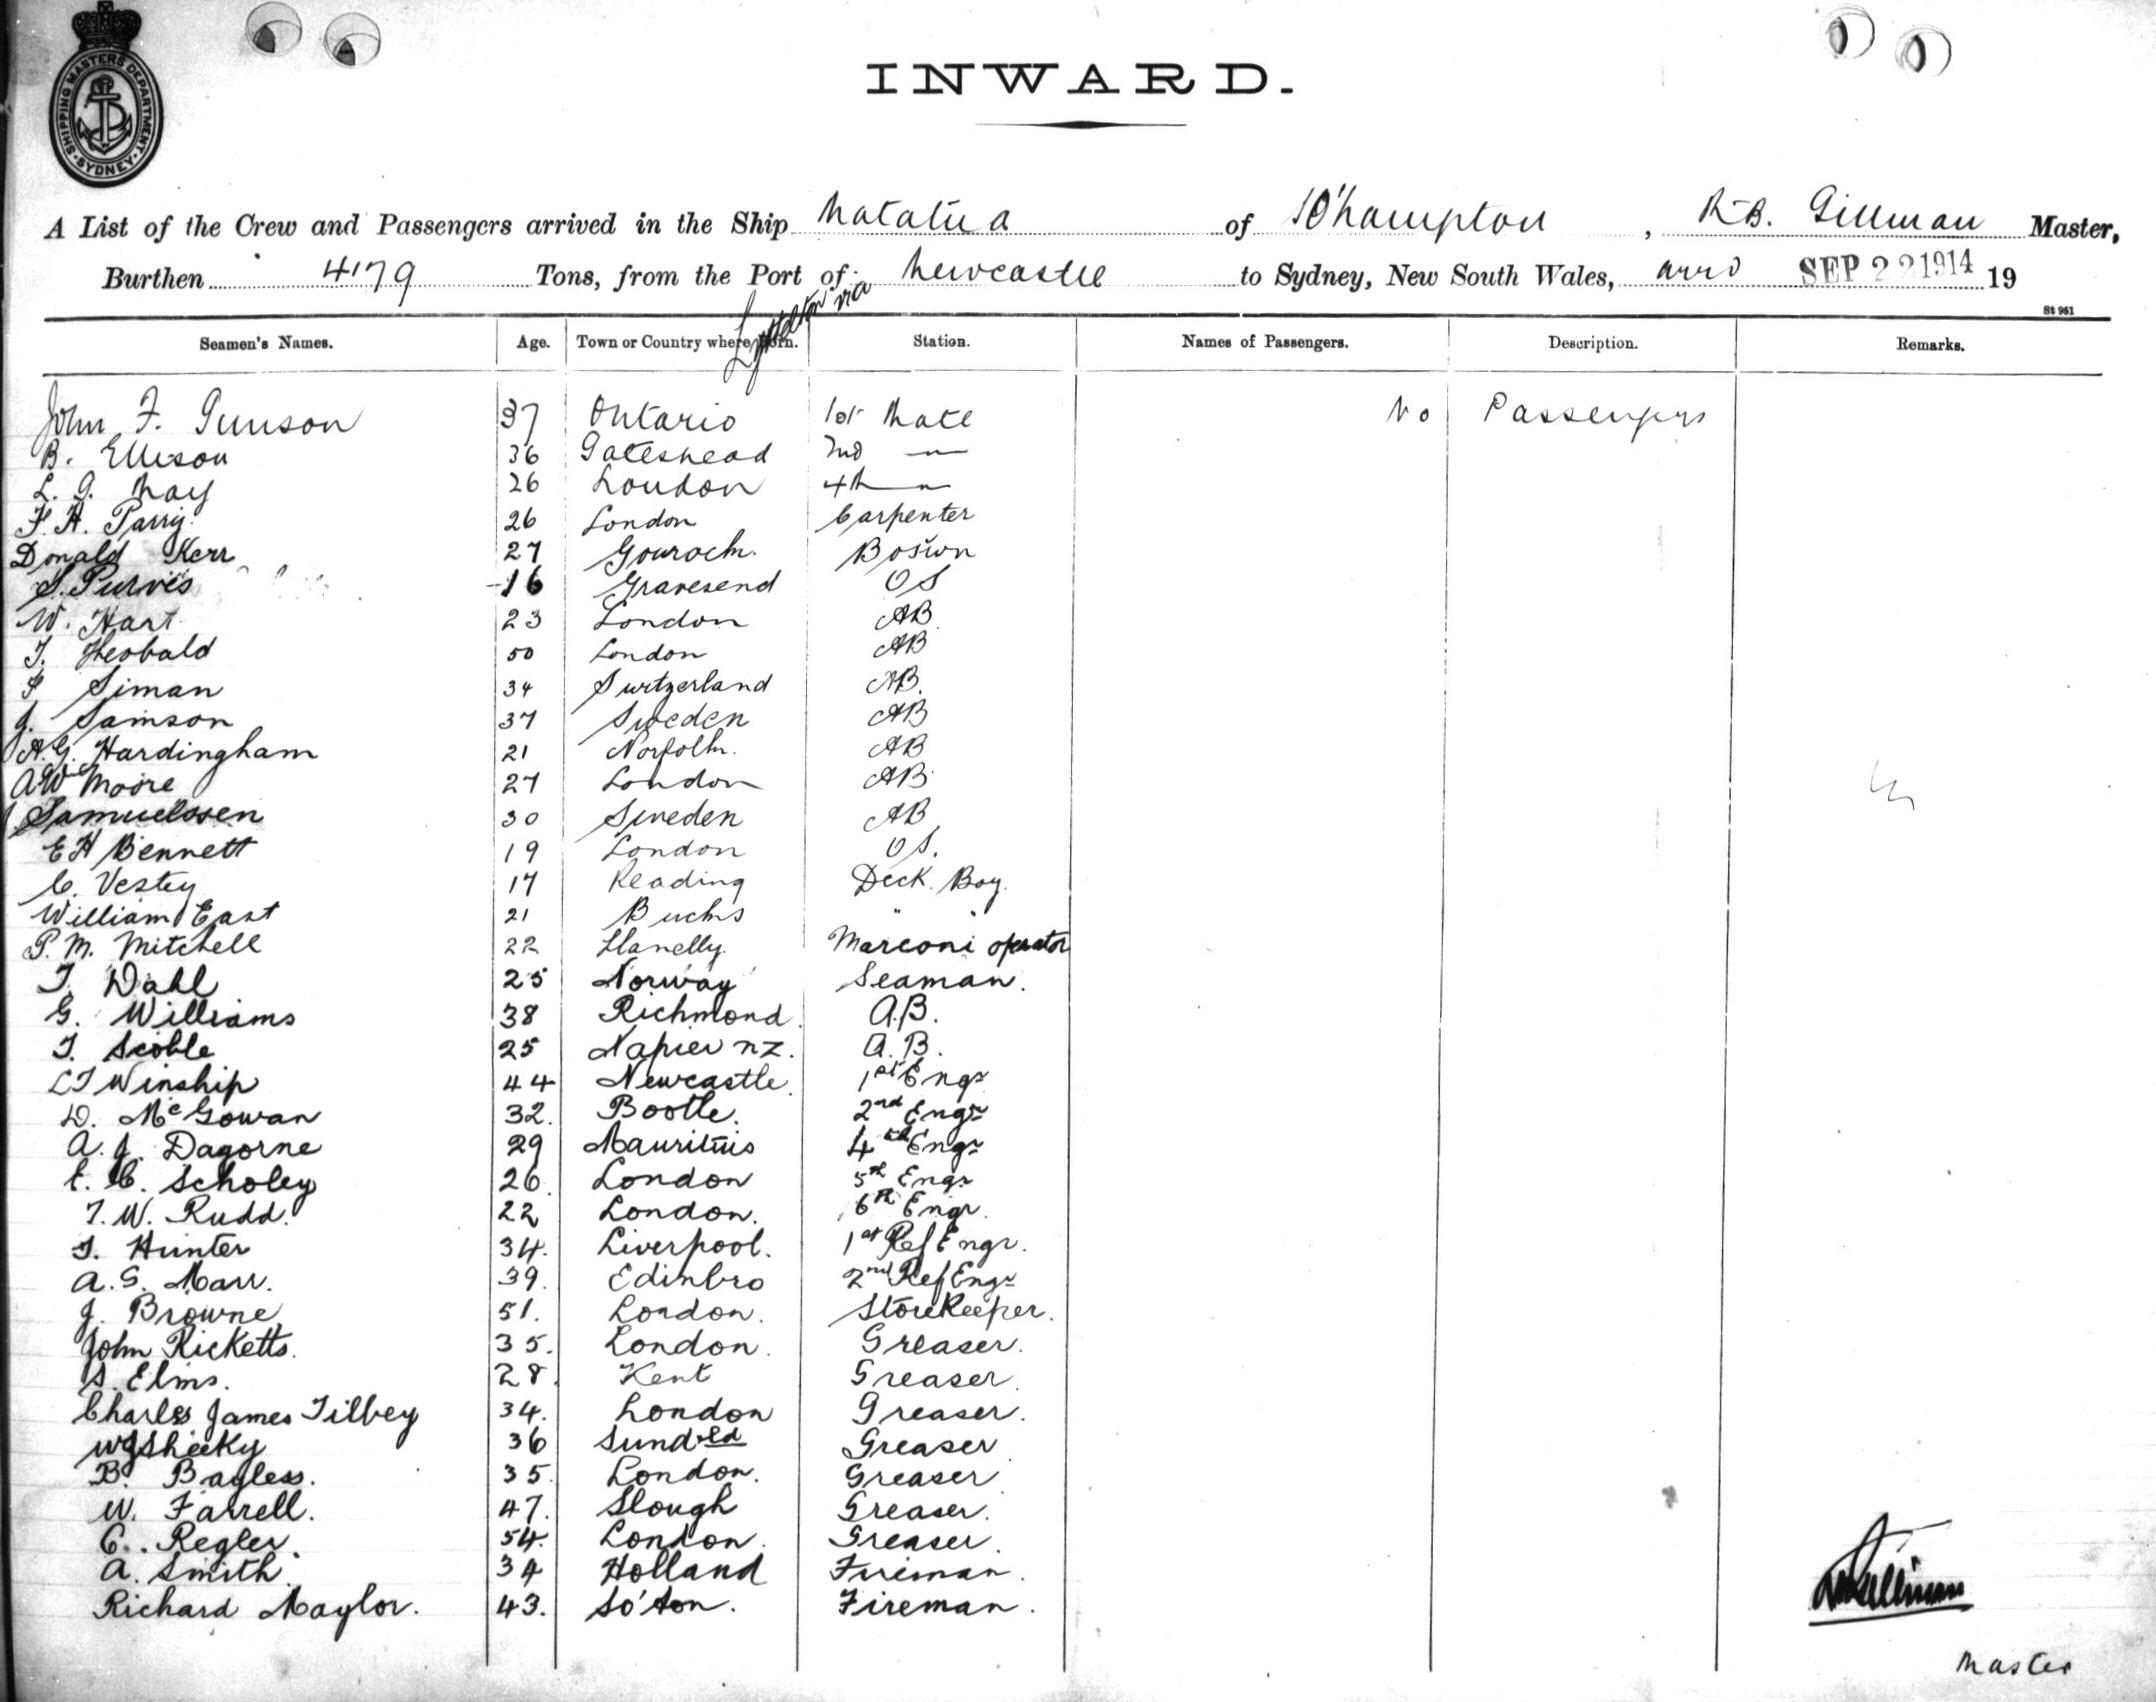 SHIPPING MASTERS DEPARTMENT. SYDNEY
INWARD.
A List of the Crew and Passengers arrived in the Ship Matatua of SO'hampton, R.B. Gillman Master,
Burthen 4179 Tons, from the Port of Lyttelton via Newcastle to Sydney, New South Wales, arrd SEP 22 1914 19
St 961
Seamen's Names. Age. Town or Country where Born. Station. Names of Passengers. Description. Remarks.
John F. Gunson 37 Ontario 1st Mate No Passengers
B. Ellison 36 Gateshead 2nd —"—
L. G. May 26 London 4th —"—
F. H. Parry 26 London Carpenter
Donald Kerr 27 Gourock. Bosun
S. Purves 16 Gravesend OS
W. Hart 23 London AB
T. Theobald 50 London AB
F Siman 34 Switzerland AB.
J. Samson 37 Sweden AB
A.G. Hardingham 21 Norfolk. AB
AW Moore 27 London AB
Samuelssen 30 Sweden AB
E H Bennett 19 London OS.
C. Vestey 17 Reading Deck Boy.
William East 21 Bucks " "
P. M. Mitchell 22 Llanelly. Marconi operator
T. Dahl 25 Norway Seaman.
G. Williams 38 Richmond A.B.
T. Scoble 25 Napier NZ. A.B.
L T Winship 44 Newcastle 1st Engr
D. McGowan 32. Bootle. 2nd Engr
A. J. Dagorne 29 Mauritius 4th Engr
E. C. Scholey 26. London 5th Engr
T. W. Rudd. 22 London. 6th Engr.
T. Hunter 34. Liverpool. 1st Ref Engr.
A. G. Marr. 39. Edinbro 2nd Ref Engr
J. Browne 51. London. Storekeeper.
John Ricketts. 35. London. Greaser.
S. Elms. 28. Kent Greaser.
Charles James Tilbey 34. London Greaser.
WJ Sheeky 36 Sundld Greaser
B. Bayless. 35. London. Greaser
W. Farrell. 47. Slough Greaser.
C. Regler. 54. London. Greaser.
A. Smith 34 Holland Fireman.
Richard Naylor. 43. So'ton. Fireman.
Master